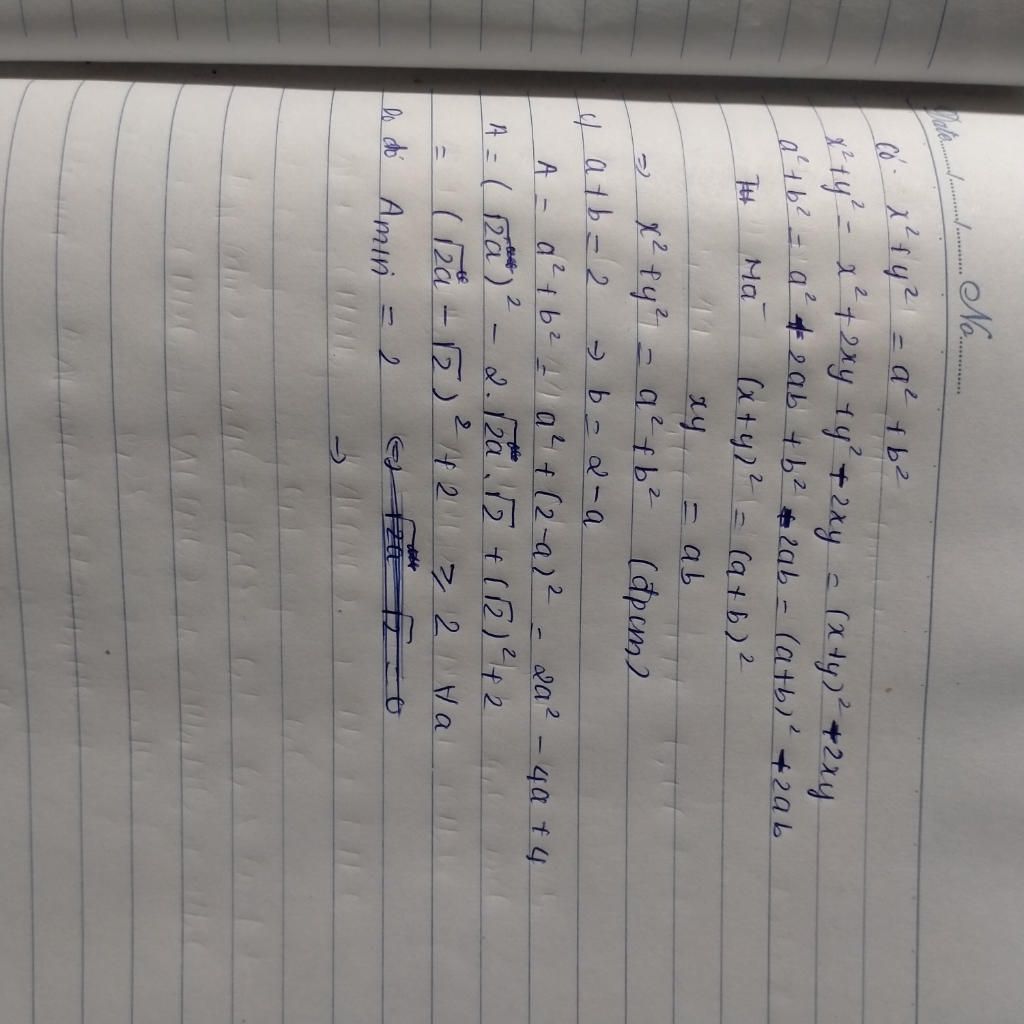 Date ...../...../......... No............
Có. x² + y² = a² + b²
x² + y² = x² + 2xy + y² - 2xy = (x+y)² - 2xy
a² + b² = a² + 2ab + b² - 2ab = (a+b)² - 2ab
Mà (x+y)² = (a+b)²
xy = ab
⇒ x² + y² = a² + b² (đpcm)
a + b = 2 ⇒ b = 2 - a
A = a² + b² = a² + (2-a)² = 2a² - 4a + 4
A = (√2a)² - 2.√2a.√2 + (√2)² + 2
= (√2a - √2)² + 2 ≥ 2 ∀a
Do đó Amin = 2 ⇔
→